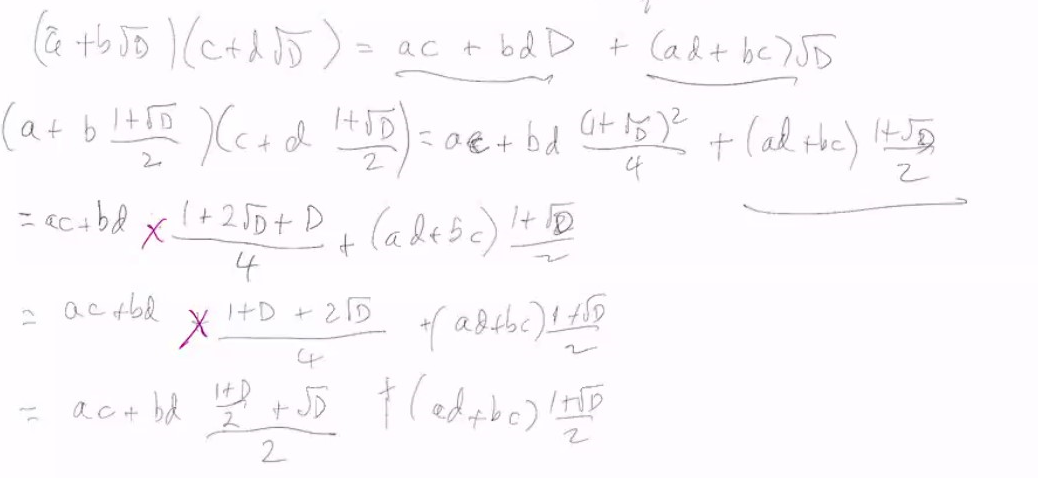 (a + b√D)(c + d√D) = ac + bdD + (ad + bc)√D
(a + b (1+√D)/2)(c + d (1+√D)/2) = ac + bd (1+√D)²/4 + (ad + bc) (1+√D)/2
= ac + bd × (1 + 2√D + D)/4 + (ad + bc) (1+√D)/2
= ac + bd × (1 + D + 2√D)/4 + (ad + bc) (1+√D)/2
= ac + bd ((1+D)/2 + √D)/2 + (ad + bc) (1+√D)/2